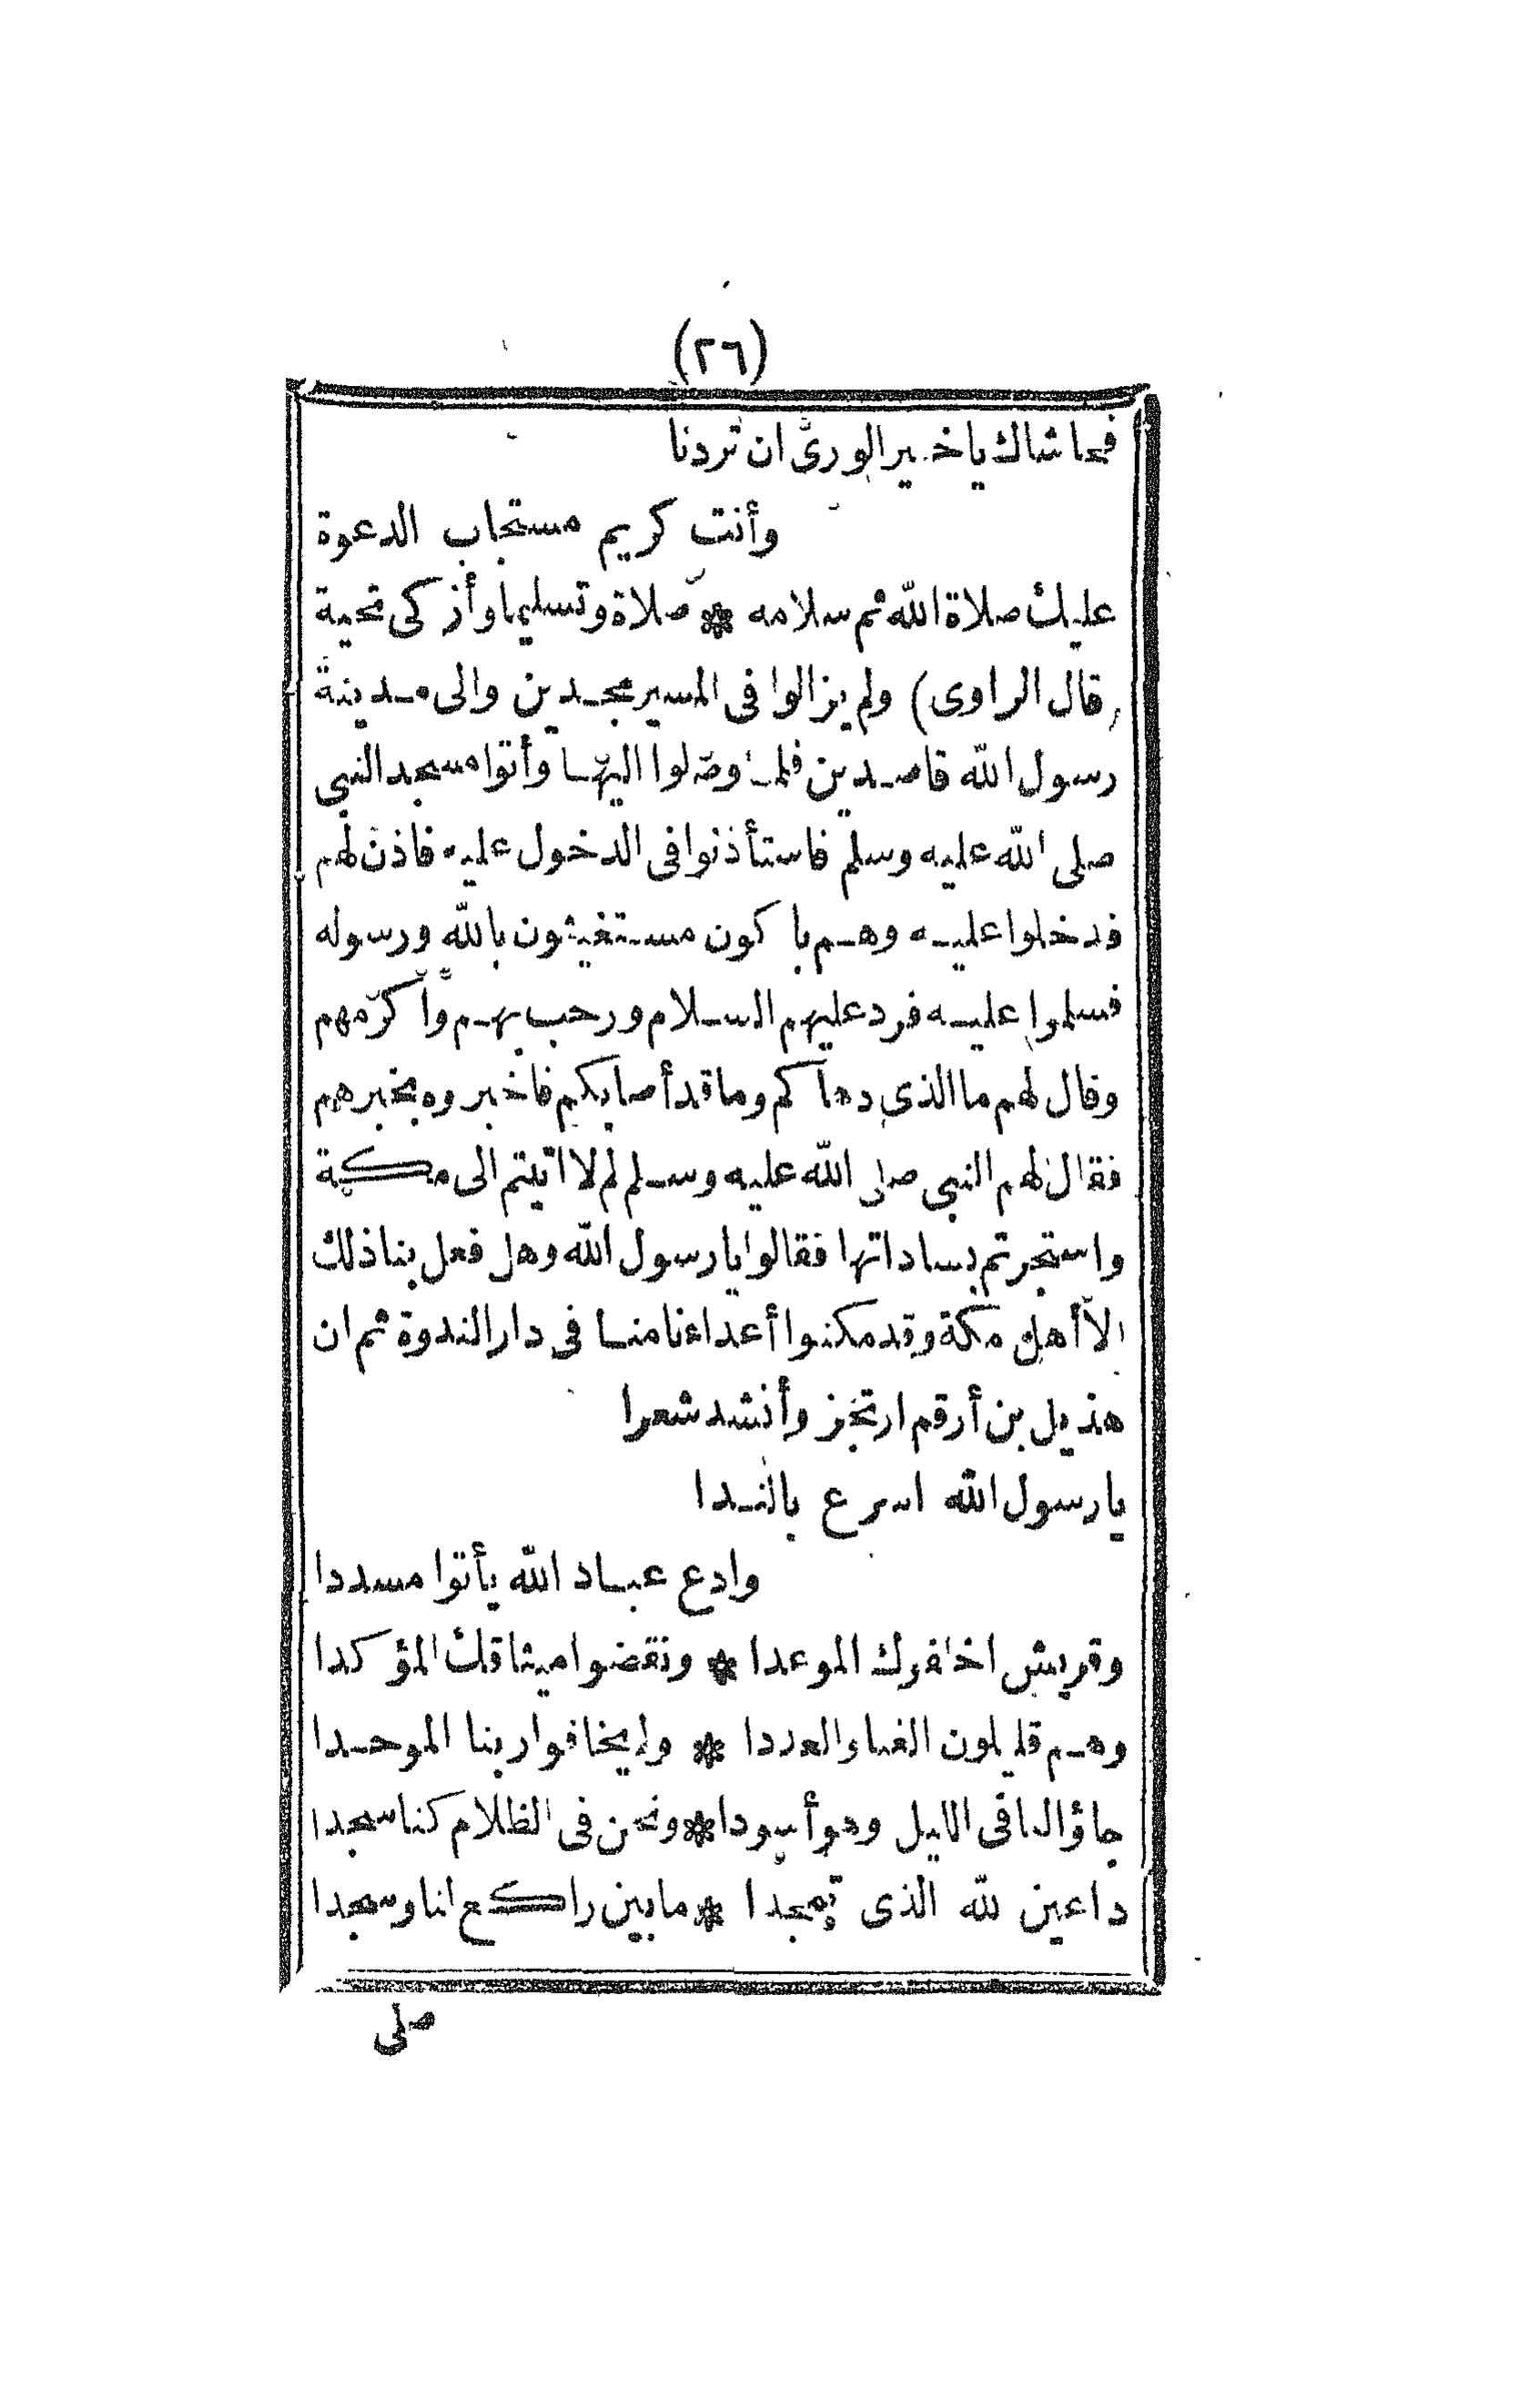 (٢٦)
فحاشاك ياخير الورى ان تردنا
وأنت كريم مستجاب الدعوة
عليك صلاة الله ثم سلامه * صلاة وتسليما وأزكى تحية
(قال الراوى) ولم يزالوا فى المسير مجدين والى مدينة
رسول الله قاصدين فلما وصلوا اليها وأتوا مسجد النبى
صلى الله عليه وسلم فاستأذنوا فى الدخول عليه فاذن لهم
فدخلوا عليه وهم باكون مستغيثون بالله ورسوله
فسلموا عليه فرد عليهم السلام ورحب بهم وأكرمهم
وقال لهم ما الذى دهاكم وما قد أصابكم فاخبروه بخبرهم
فقال لهم النبى صلى الله عليه وسلم لم لا اتيتم الى مكة
واستجرتم بساداتها فقالوا يا رسول الله وهل فعل بنا ذلك
الا أهل مكة وقد مكنوا أعداءنا منا فى دار الندوة ثم ان
هذيل بن أرقم ارتجز وأنشد شعرا
يارسول الله اسرع بالندا
وادع عباد الله يأتوا مسددا
وقريش اخلفوك الموعدا * ونقضوا ميثاقك المؤكدا
وهم قليلون الغناء والعددا * ولم يخافوا ربنا الموحدا
جاؤا لنا فى الليل وهو أسودا * ونحن فى الظلام كنا سجدا
داعين لله الذى تمجدا * مابين راكع لنا وسجدا
صلى